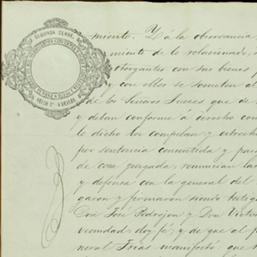 miento. Y á la observancia
miento de lo relacionado,
otorgantes con sus bienes
y con ellos se someten al
de los Señores Jueces que de
y deban conforme á derecho
lo dicho los compelan y
por sentencia consentida y
de cosa juzgada, renuncian
y defensa con la general del
garon y firmaron siendo testigos
Don José Pedrojon y Don
vecindad doy fé; y de que al
neral Frias manifestó que